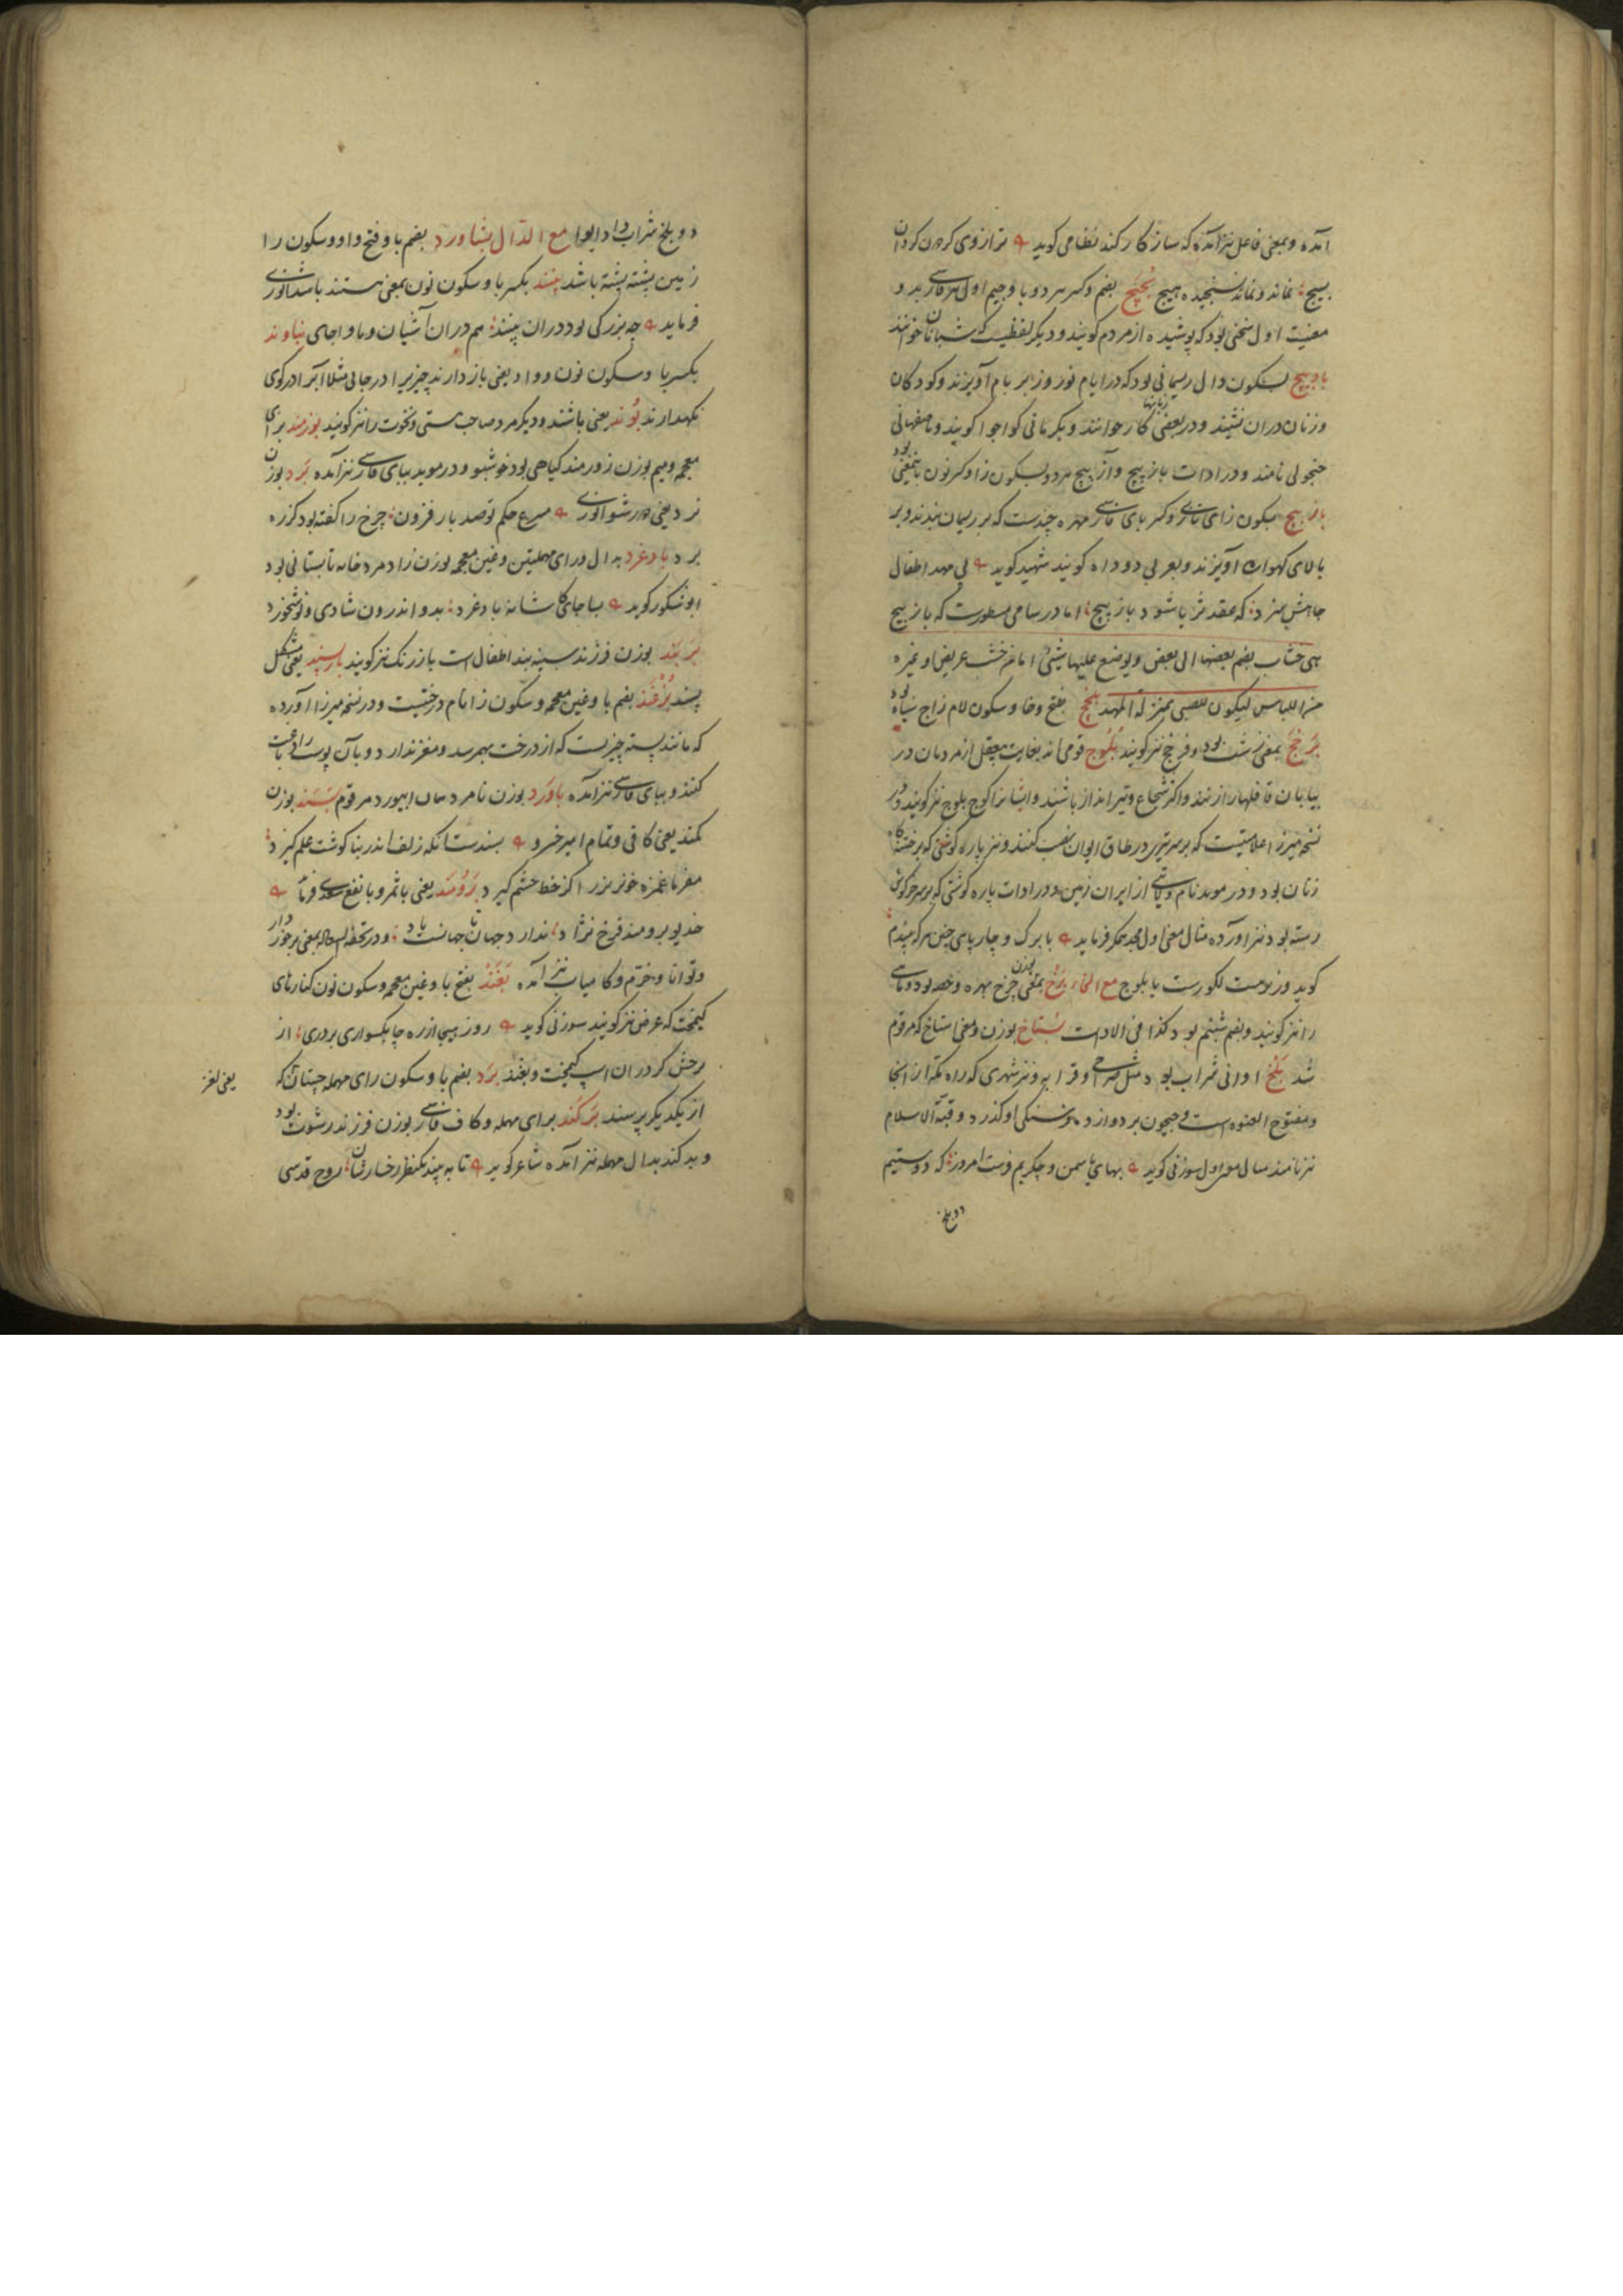 آمده و بمعنی فاعل نیز آمده که ساز کار کند نظامی کوید ترازوی کردن کردان
بسیج نماند و نماند نسنجیده هیچ بجبج بضم و کسر هر دو با و جیم اول فارسی بدو
معنیست اول سخنی بود که پوشیده از مردم کویند و دیکر لفظیست که شبانان خوانند
باد پیچ بسکون دال ریسمانی بود که در ایام نوروز بر بام آویزند و کودکان
و زنان دران نشینند و در بعضی کار خوانند و بکرمانی کواجو کویند و باصفهانی
جنجولی نامند و در ادات باز پیچ و آز پیچ هر دو بسکون زا و کسر نون باینمعنی بود
باز پیچ بسکون زای تازی و کسر بای فارسی مهره چندست که بر ریسمان بندند و بر
بالای کهواره آویزند و بعربی دوداه کویند شهید کوید بی مهد اطفال
جاهش سزد که عقد ثریا شود باز پیچ اما در سامی مسطورست که باز پیچ
هی خشاب یضم بعضها الی بعض و یوضع علیها شیئ اما من خشب عریض او غیره
من اللباس لیکون للصبی بمنزلة المهد بلخج بفتح و خا و سکون لام زاج سیاه بود
برخج بمعنی زشت بود و فرخج نیز کویند بلوج قومی اند بغایت بیعقل از مردمان در
بیابان قافلها را زنند و اکثر شجاع و تیرانداز باشند و ایشانرا کوج بلوج نیز کویند و در
نسخه میرزا علامتیست که بر سر تیزی در طاق ایوان نصب کنند و نیز پاره کوشتی که بر ختنه کاه
زنان بود و در موید نام ولایتی از ایران زمین و در ادات پاره کوشتی که بر سر خروس
رسته بود نیز آورده مثال معنی اول مجد همکر فرماید با برک و چارپای چنین
کوید وزیرست لکورست یا بلوج مع الخاء برخ بمعنی بوزن چرخ بهره و حصه بود و ماهی
را نیز کویند و بضم شبنم بود کذا فی الادات بستاخ بوزن و معنی استاخ که مرقوم
شد بلخ اوانی شراب بود مثل صراحی و قرابه و نیز شهری که راه مکه از انجا
و مفتوح العنوه است و جیحون بر دوازده فرسنکی او کذرد و قبة الاسلام
نیز نامند مثال معنی اول سوزنی کوید بهای یاسمن و چکریم فرست امروز که دوستیم
دو بلخ
دو بلخ شراب داد ایوا مع الدال بشاورد بضم با و فتح واو و سکون را
زمین پشته پشته باشد بشند بکسر با و سکون نون بمعنی هستند باشد انوری
فرماید چه بزرکی بود دران بشند هم دران آشیان و ماوا جای بناوند
بکسر با و سکون نون و واو یعنی باز دارند چیزیرا در جائی مثلا آبرا در کوی
نکهدارند بوند یعنی باشند و دیکر مرد صاحب مستی و نخوت را نیز کویند بوزمند برای
معجمه و میم بوزن زورمند کیاهی بود خوشبو و در موید ببای فارسی نیز آمده برد بوزن
نرد یعنی دور شو انوری مسرع حکم تو صد بار فزون چرخ را کفته بود کزره
برد بادغرد بدال و رای مهملتین و غین معجمه بوزن زادمرد خانه تابستانی بود
ابو شکور کوید بسا جای کاشانه بادغرد بدو اندرون شادی و نوشخورد
بربند بوزن فرزند سینه بند اطفال است باز رنک نیز کویند باز سپید یعنی مشکل
پسند بزغند بضم با و غین معجمه و سکون زا نام درختیست و در نسخه میرزا آورده
که مانند پسته چیزیست که از درخت بهمرسد و مغز ندارد و بآن پوست را دباغت
کنند و ببای فارسی نیز آمده باورد بوزن نامرد همان ابیورد مرقوم بسند بوزن
کمند یعنی کافی و تمام امیر خسرو بسندست آنکه زلف اندر بناکوشت علم کیرد
مفرما غمزه خونریز را کز خط حشم کیرد برومند یعنی باثمر و بانفع سعدی فرماید
خدیو برومند فرخ نژاد ندارد جهان تا جهانست یاد و در تحفه السعاده بمعنی برخوردار
و توانا و خرم و کامیاب نیز آمده بغند بفتح با و غین معجمه و سکون نون کنارهای
کیمخت که غرض نیز کویند سوزنی کوید روز هیجا از ره چابکسواری بردری از
برخش کردران اسپ کیمخت و بغند برد بضم با و سکون رای مهمله چیستان که
یعنی لغز
از یکدیکر پرسند برکند برای مهمله و کاف فارسی بوزن فرزند رشوت بود
و بدکند بدال مهمله نیز آمده شاعر کوید تا به بیند یکنظر رخسارشان روح قدسی